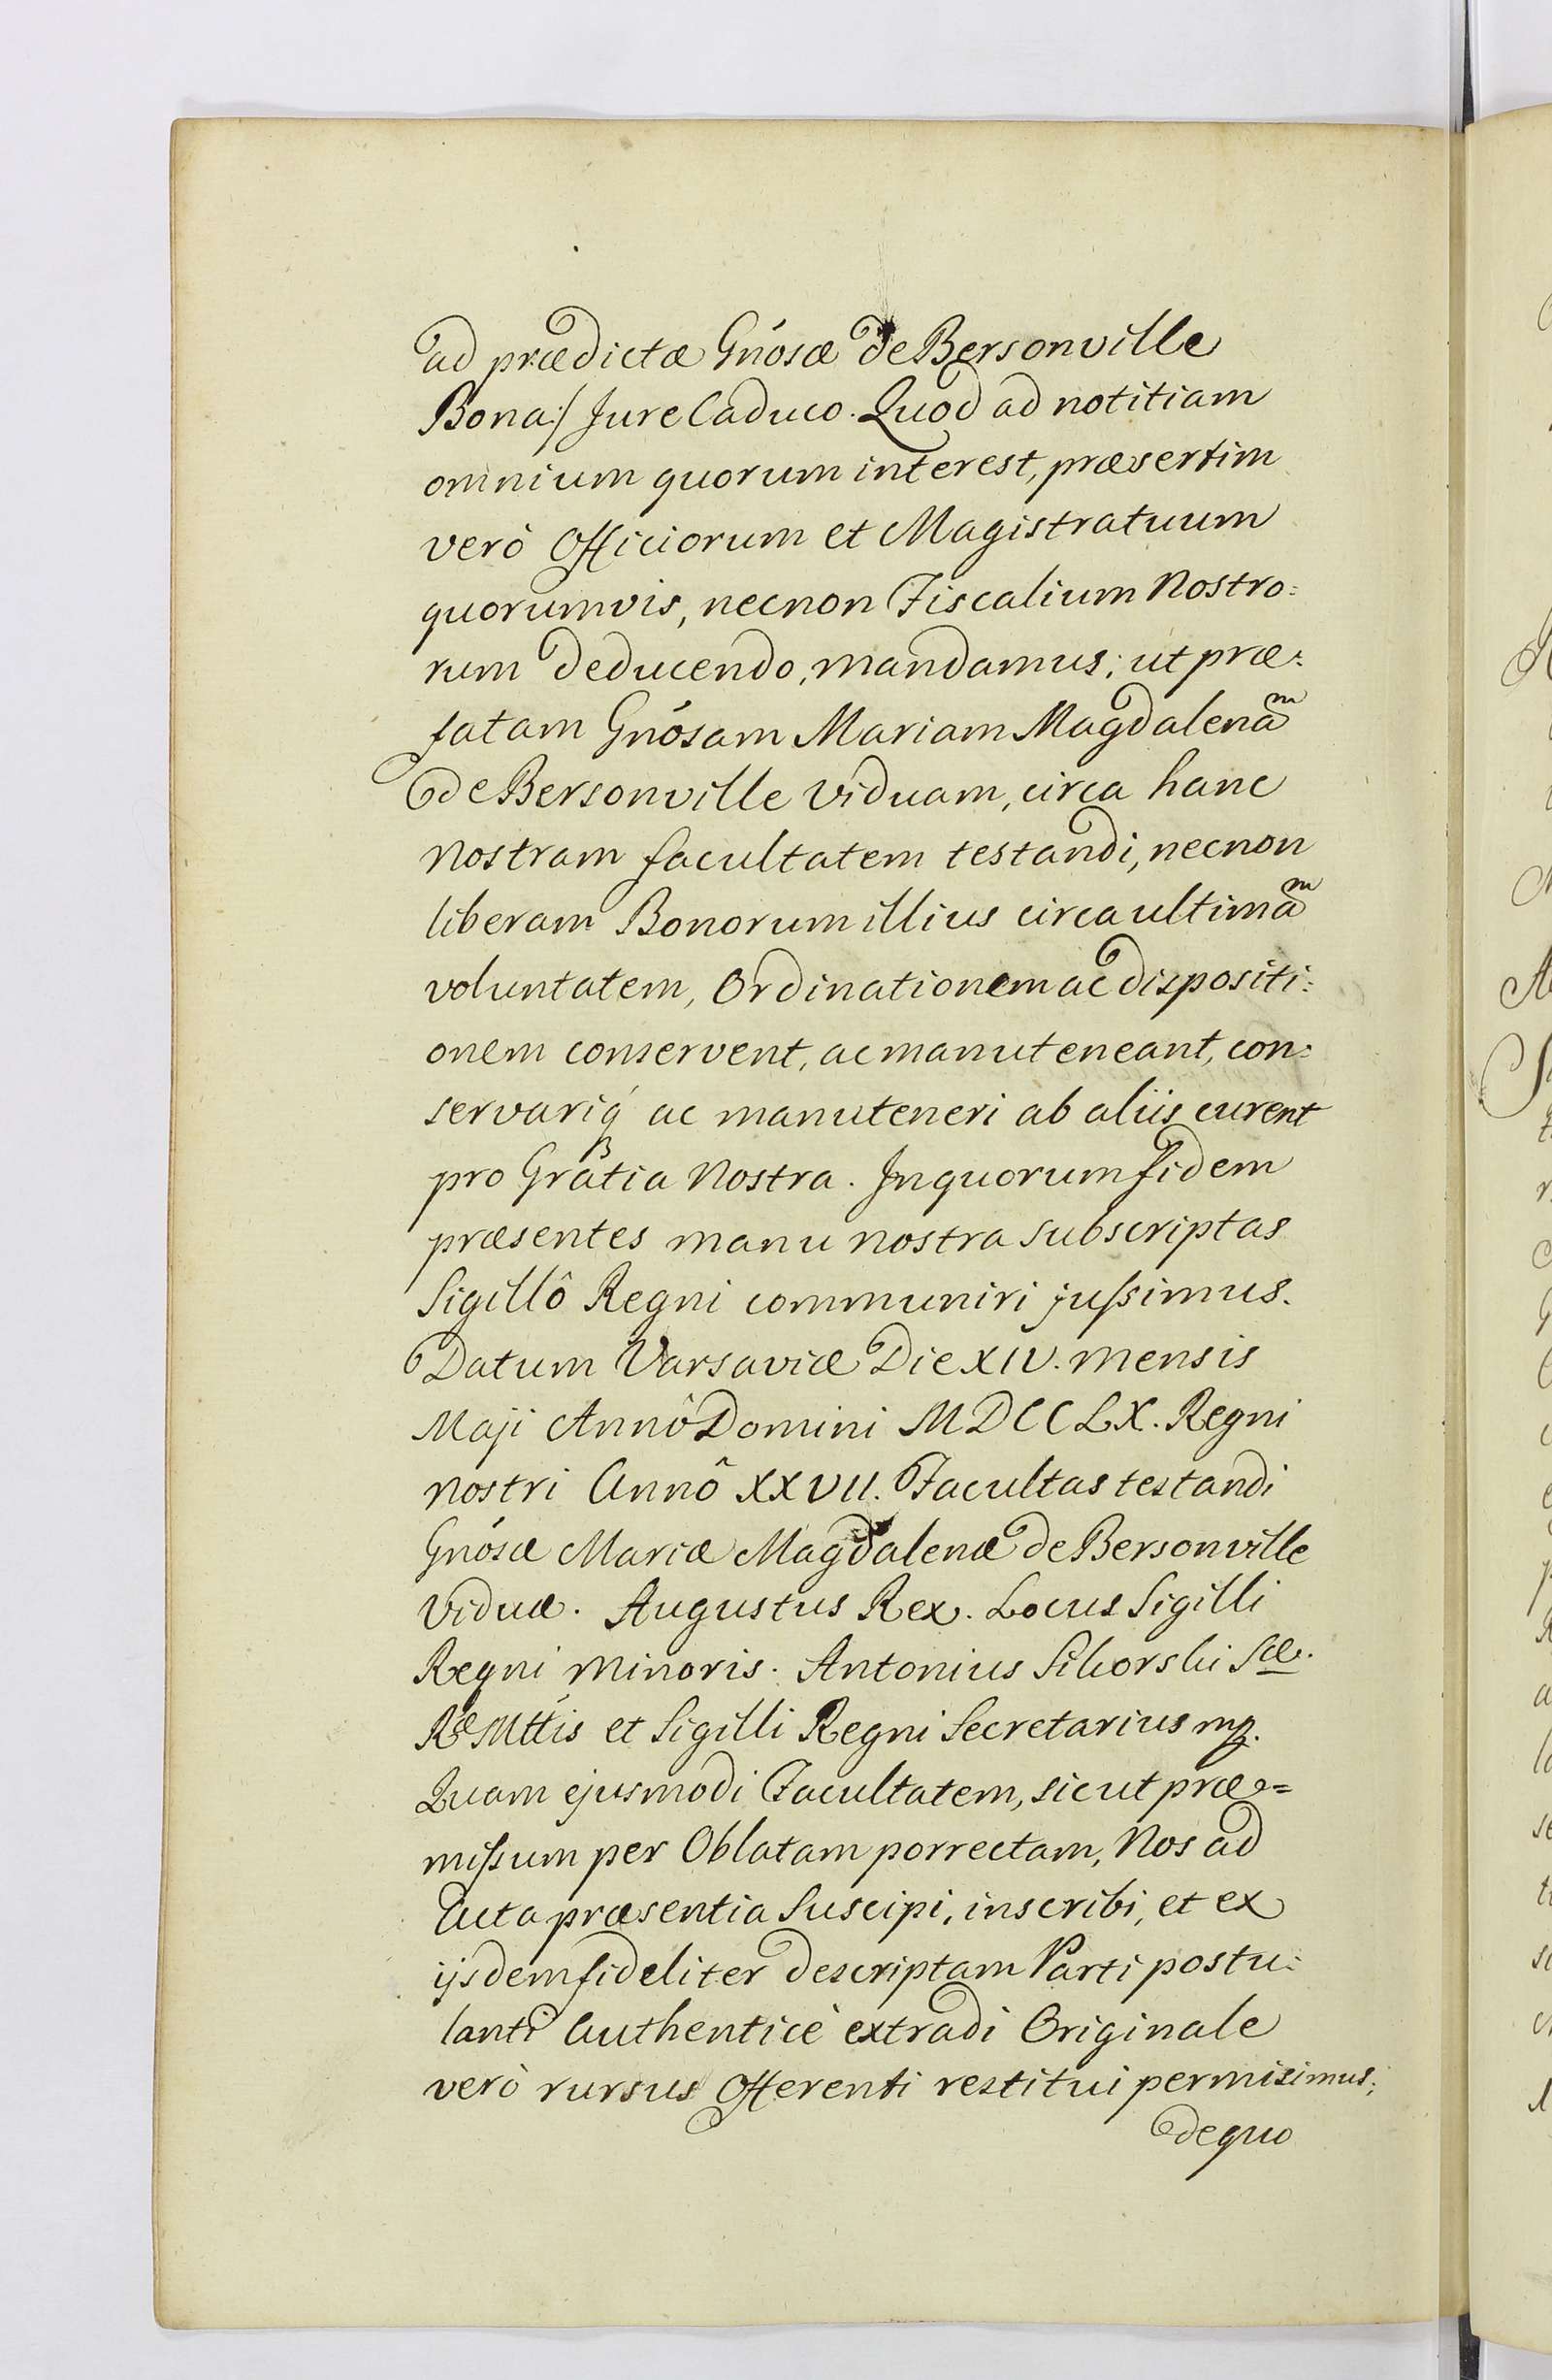 ad prædictæ Gnósæ de Bersonville
Bona:/ Jure Caduco. Quod ad notitiam
omnium quorum interest, præsertim
verò Officiorum et Magistratuum
quorumvis, necnon Fiscalium Nostro:
rum deducendo, mandamus; ut præ:
fatam Gnósam Mariam Magdalenaᵐ
de Bersonville Viduam, circa hanc
Nostram facultatem testandi, necnon
liberam Bonorum illius circa ultimaᵐ
voluntatem, Ordinationem ac dispositi:
onem conservent, ac manuteneant, con:
servariq́ ac manuteneri ab aliis curent
pro Gratia Nostra. In quorum fidem
præsentes manu nostra subscriptas
Sigillô Regni communiri jussimus.
Datum Varsaviæ Die XIV. Mensis
Maji Annô Domini MDCCLX. Regni
Nostri Annô XXVII. Facultas testandi
Gnósæ Mariæ Magdalenæ de Bersonville
Viduæ. Augustus Rex. Locus Sigilli
Regni Minoris. Antonius Sikorski Sæ.
Ræ Mttis et Sigilli Regni Secretarius mp.
Quam ejusmodi Facultatem, sicut præ=
missum per Oblatam porrectam, Nos ad
Acta præsentia Suscipi, inscribi, et ex
ijsdem fideliter descriptam Parti postu:
lanti Authenticè extradi Originale
verò rursus Offerenti restitui permisimus;
de quo